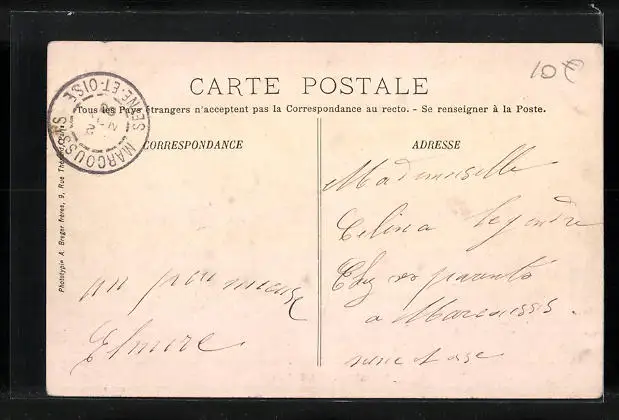 10
CARTE POSTALE
Tous les Pays étrangers n'acceptent pas la Correspondance au recto. - Se renseigner à la Poste.
MARCOUSSIS
SEINE-ET-OISE
CORRESPONDANCE
ADRESSE
Phototypie A. Breger frères, 9, Rue
Mademoiselle
Celina Legendre
Chez ses parents
a Marcoussis.
seine et oise
un peu mieux
Elmire